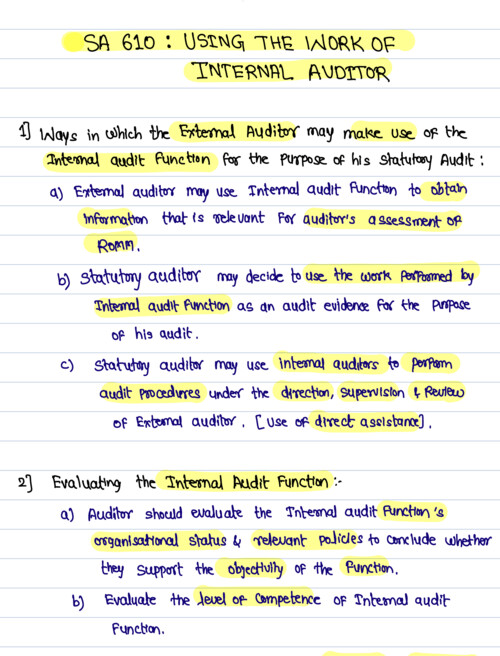 SA 610 : USING THE WORK OF
INTERNAL AUDITOR
1] Ways in which the External Auditor may make use of the
Internal audit Function for the Purpose of his Statutory Audit :
a) External auditor may use Internal audit Function to obtain
Information that is relevant for auditor's assessment of
ROMM.
b) Statutory auditor may decide to use the work performed by
Internal audit Function as an audit evidence for the purpose
of his audit.
c) Statutory auditor may use internal auditors to perform
audit procedures under the direction, supervision & Review
of External auditor. [Use of direct assistance].
2] Evaluating the Internal Audit Function :-
a) Auditor should evaluate the Internal audit Function's
organisational status & relevant policies to conclude whether
they support the objectivity of the Function.
b) Evaluate the level of competence of Internal audit
Function.